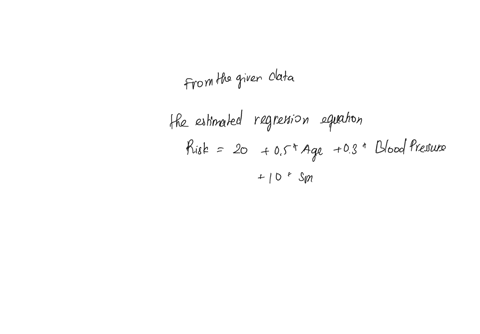 From the given data
the estimated regression equation
Risk = 20 + 0.5 * Age + 0.3 * Blood Pressure
+ 10 * Sm